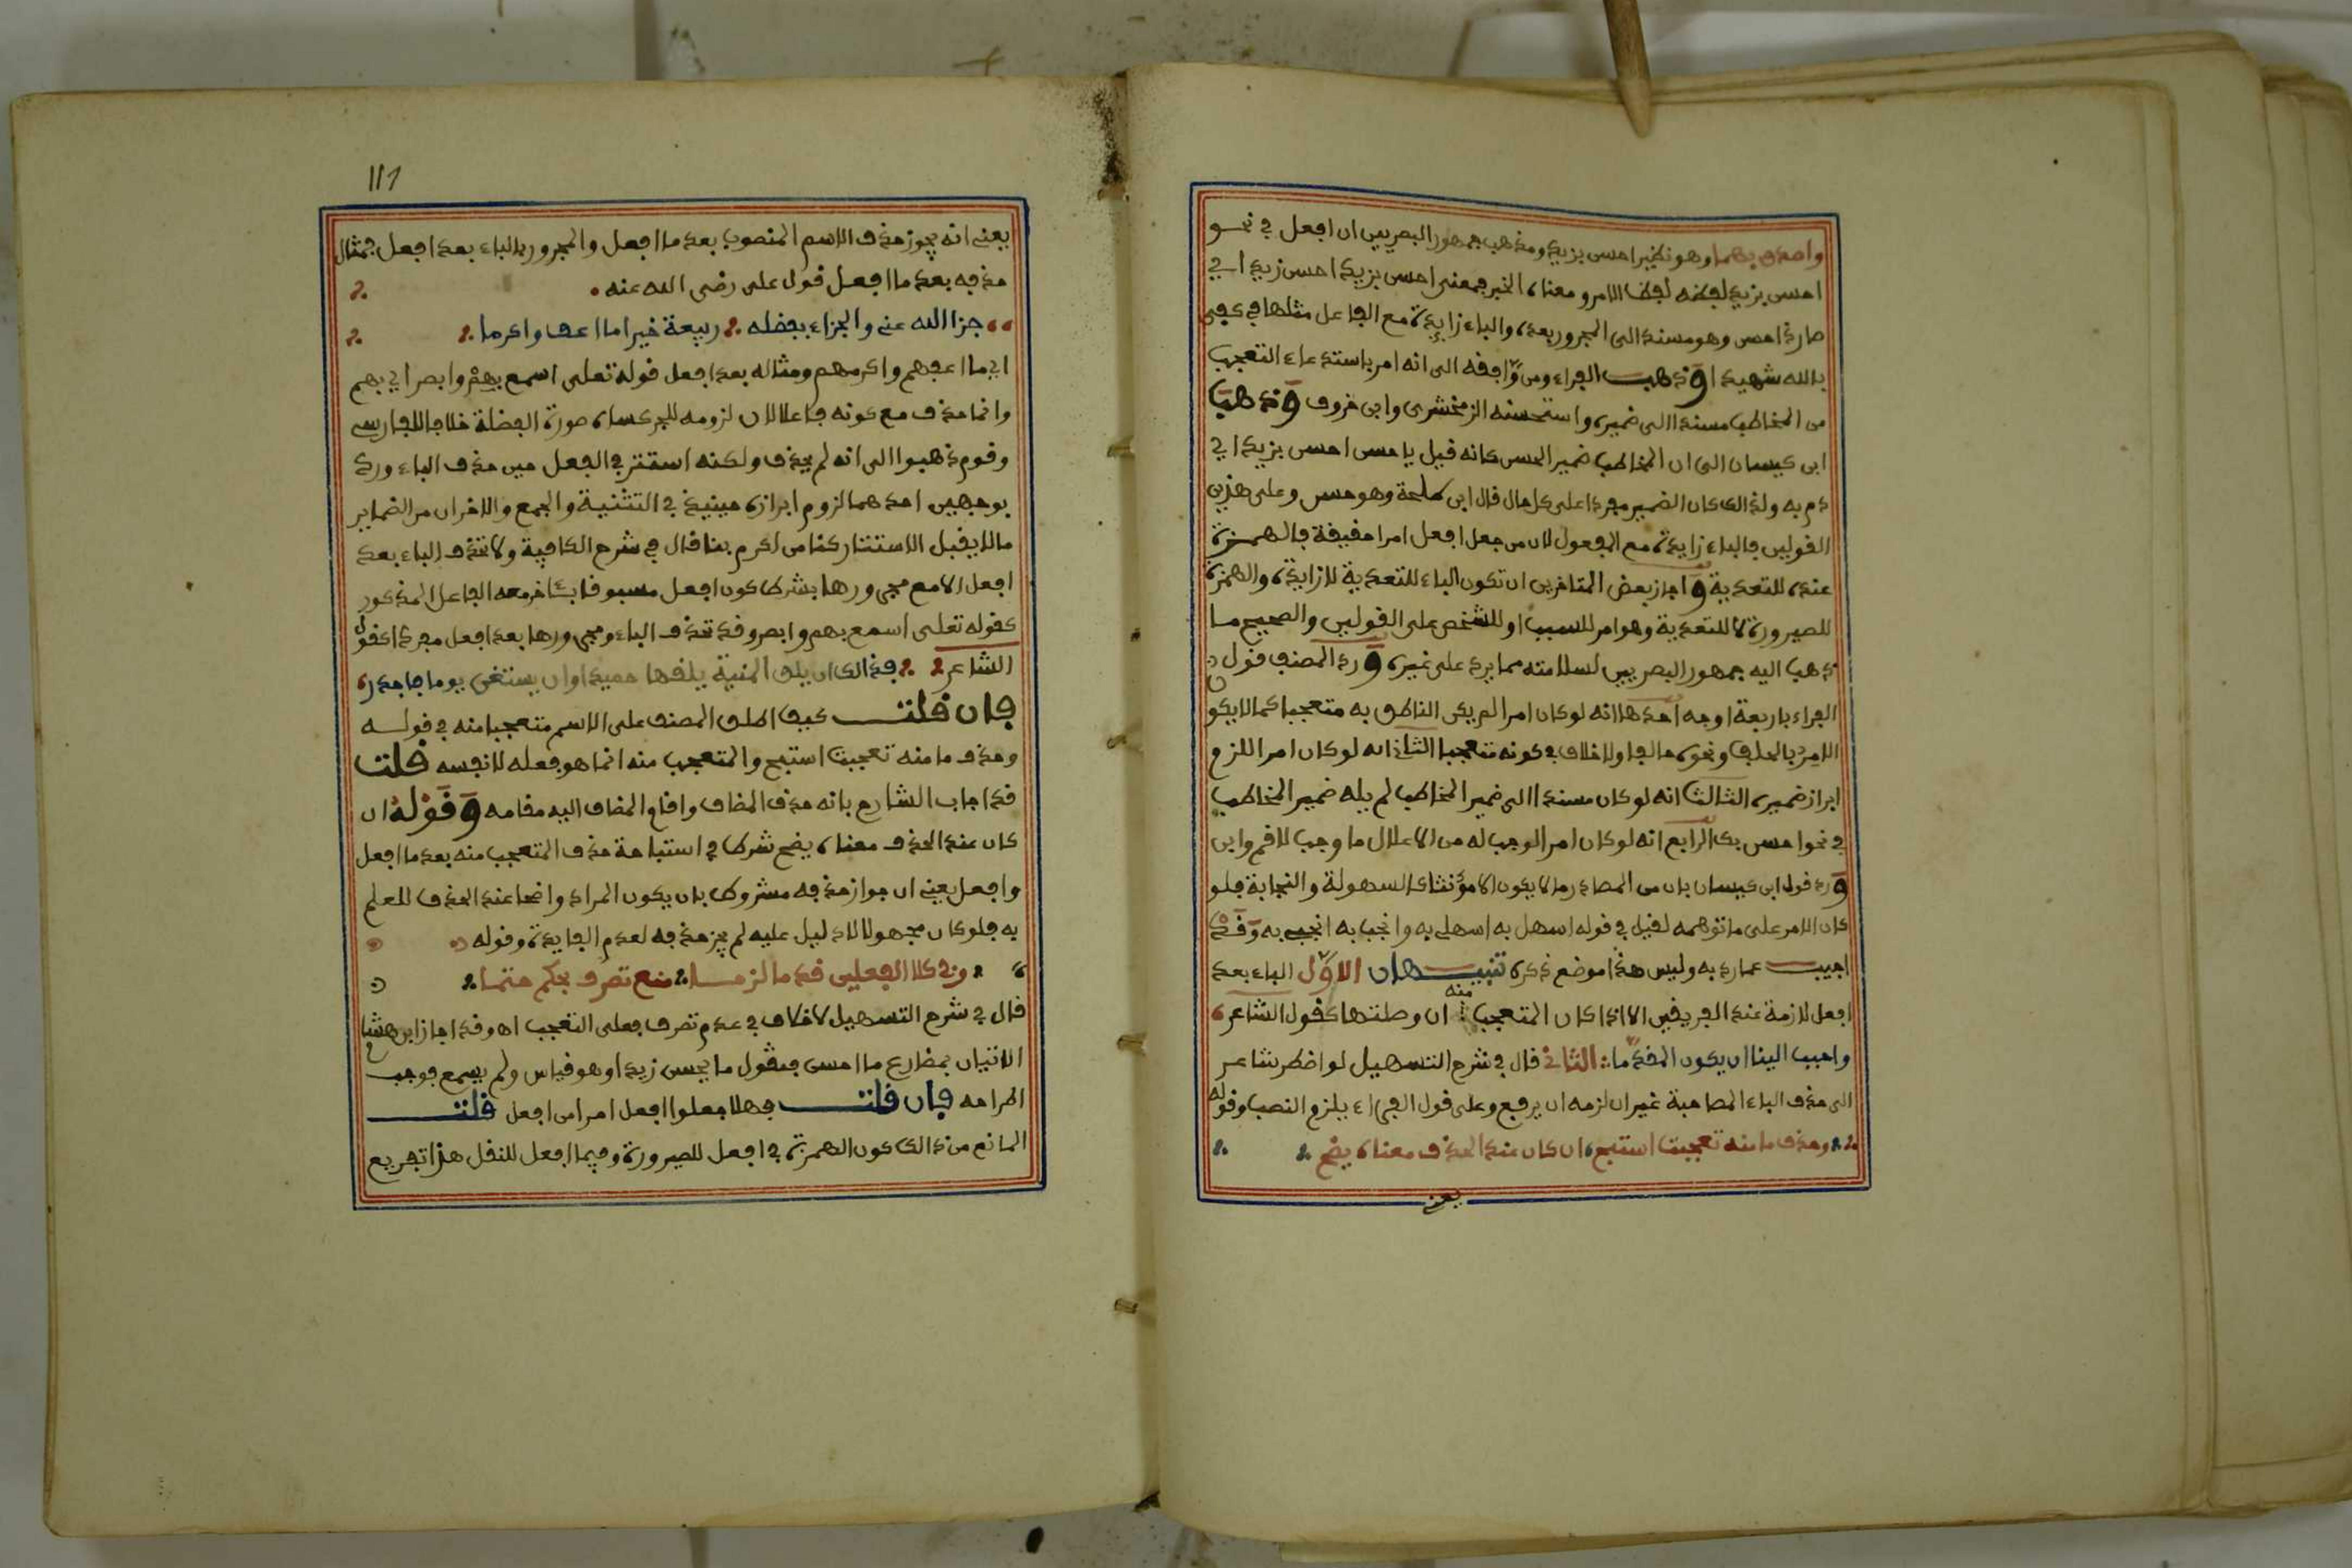 واصدق بهما وهو نظير احسن بزيد ومذهب جمهور البصريين ان افعل في نحو
احسن بزيد لفظه لفظ الامر ومعناه الخبر فمعنى احسن بزيد احسن زيد اي
صار ذا حسن وهو مسند الى المجرور بعده والباء زايدة مع الفاعل مثلها في كفى
بالله شهيدا وذهب الفراء ومن وافقه الى انه امر باستدعاء التعجب
من المخاطب مسندا الى ضميره واستحسنه الزمخشري وابن خروف وذهب
ابن كيسان الى ان المخاطب ضمير الحسن كانه قيل يا حسن احسن بزيد اي
دم به ولذالك كان الضمير مفردا على كل حال قال ابن طلحة وهو حسن وعلى هذين
القولين فالباء زايدة مع المفعول لان من جعل افعل امرا حقيقة فالهمزة
عنده للتعدية واجاز بعض المتاخرين ان تكون الباء للتعدية لا زايدة والهمزة
للصيرورة لا للتعدية وهو امر للسبب او للشخص على القولين والصحيح ما
ذهب اليه جمهور البصريين لسلامته مما يرد على غيره ورد المصنف قول
الفراء باربعة اوجه احدها انه لو كان امرا لم يكن الناطق به متعجبا كما لا يكو
الامر بالحلف ونحوه حالفا ولا خلاف في كونه متعجبا الثاني انه لو كان امرا للزم
ابراز ضميره الثالث انه لو كان مسندا الى ضمير المخاطب لم يله ضمير المخاطب
في نحو احسن بك الرابع انه لو كان امرا لوجب له من الاعلال ما وجب لاقم وابن
ورد قول ابن كيسان بان من المصادر ما لا يكون الا مؤنثا كالسهولة والنجابة فلو
كان الامر على ما توهمه لقيل في قوله اسهل به اسهلي به وانجب به انجبي به وقد
اجيب عما رد به وليس هذا موضع ذكره تنبيهان الاول الباء بعد
افعل لازمة عند الفريقين الا اذا كان المتعجب منه ان وصلتها كقول الشاعر
واحبب الينا ان يكون المقدما الثاني قال في شرح التسهيل لو اضطر شاعر
الى حذف الباء المصاحبة غير ان لزمه ان يرفع وعلى قول الفراء يلزم النصب وقوله
وحذف ما منه تعجبت استبح ان كان عند الحذف معناه يضح
يعني
111
يعني انه يجوز حذف الاسم المنصوب بعد ما افعل والمجرور بالباء بعد افعل فمثال
حذفه بعد ما افعل قول على رضي الله عنه
جزا الله عني والجزاء بفضله ربيعة خيرا ما اعف واكرما
اي ما اعفهم واكرمهم ومثاله بعد افعل قوله تعلى اسمع بهم وابصر اي بهم
وانما حذف مع كونه فاعلا لان لزومه للجر كساه صورة الفضلة خلافا للفارسي
وقوم ذهبوا الى انه لم يحذف ولكنه استتر في الفعل حين حذف الباء ورد
بوجهين احدهما لزوم ابرازه حينيذ في التثنية والجمع والاخر ان من الضماير
ما لا يقبل الاستتار كنا من اكرم بنا قال في شرح الكافية ولا تحذف الباء بعد
افعل الا مع مجرورها بشرط كون افعل مسبوقا بـاخر معه الفاعل المذكور
كقوله تعلى اسمع بهم وابصر وقد تحذف الباء ومجرورها بعد افعل مفردا كقول
الشاعر فذالك ان يلق المنية يلقها حميدا وان يستغن يوما فاجدر
فان قلت كيف اطلق المصنف على الاسم متعجبا منه في قوله
وحذف ما منه تعجبت استبح والمتعجب منه انما هو فعله لا نفسه قلت
قد اجاب الشارح بانه حذف المضاف واقام المضاف اليه مقامه وقوله ان
كان عند الحذف معناه يضح شرط في استباحة حذف المتعجب منه بعد ما افعل
وافعل يعني ان جواز حذفه مشروط بان يكون المراد واضحا عند الحذف للعلم
به فلو كان مجهولا لا دليل عليه لم يجز حذفه لعدم الفايدة وقوله
وفي كلا الفعلين قدما لزما منع تصرف بحكم حتما
قال في شرح التسهيل لا خلاف في عدم تصرف فعلي التعجب اه وقد اجاز ابن هشام
الاتيان بمضارع ما احسن فتقول ما يحسن زيدا وهو قياس ولم يسمع فوجب
اطراحه فان قلت فهلا جعلوا افعل امرا من افعل قلت
المانع من ذالك كون الهمزة في افعل للصيرورة وفي ما افعل للنقل هذا تفريع